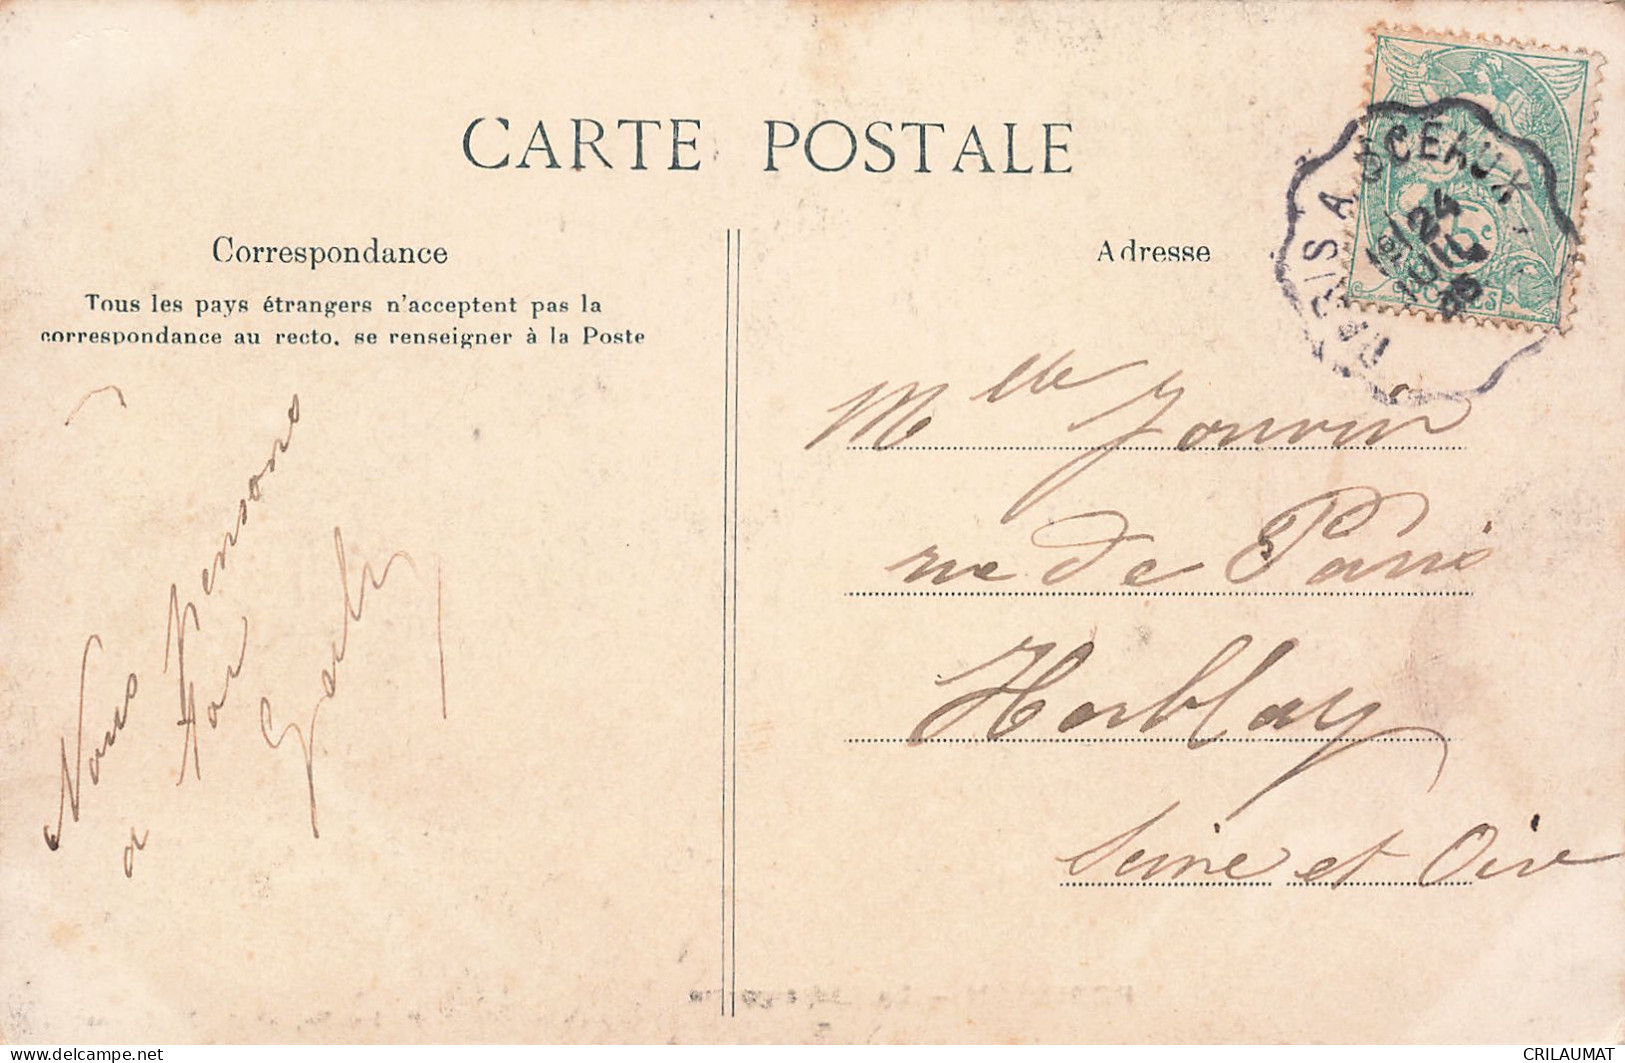 CARTE POSTALE
Correspondance
Tous les pays étrangers n'acceptent pas la
correspondance au recto, se renseigner à la Poste
Nous pensons
a
Adresse
Mlle Jouvin
rue de Paris
Herblay
Seine et Oise
24
JUIL
5c
CRILAUMAT